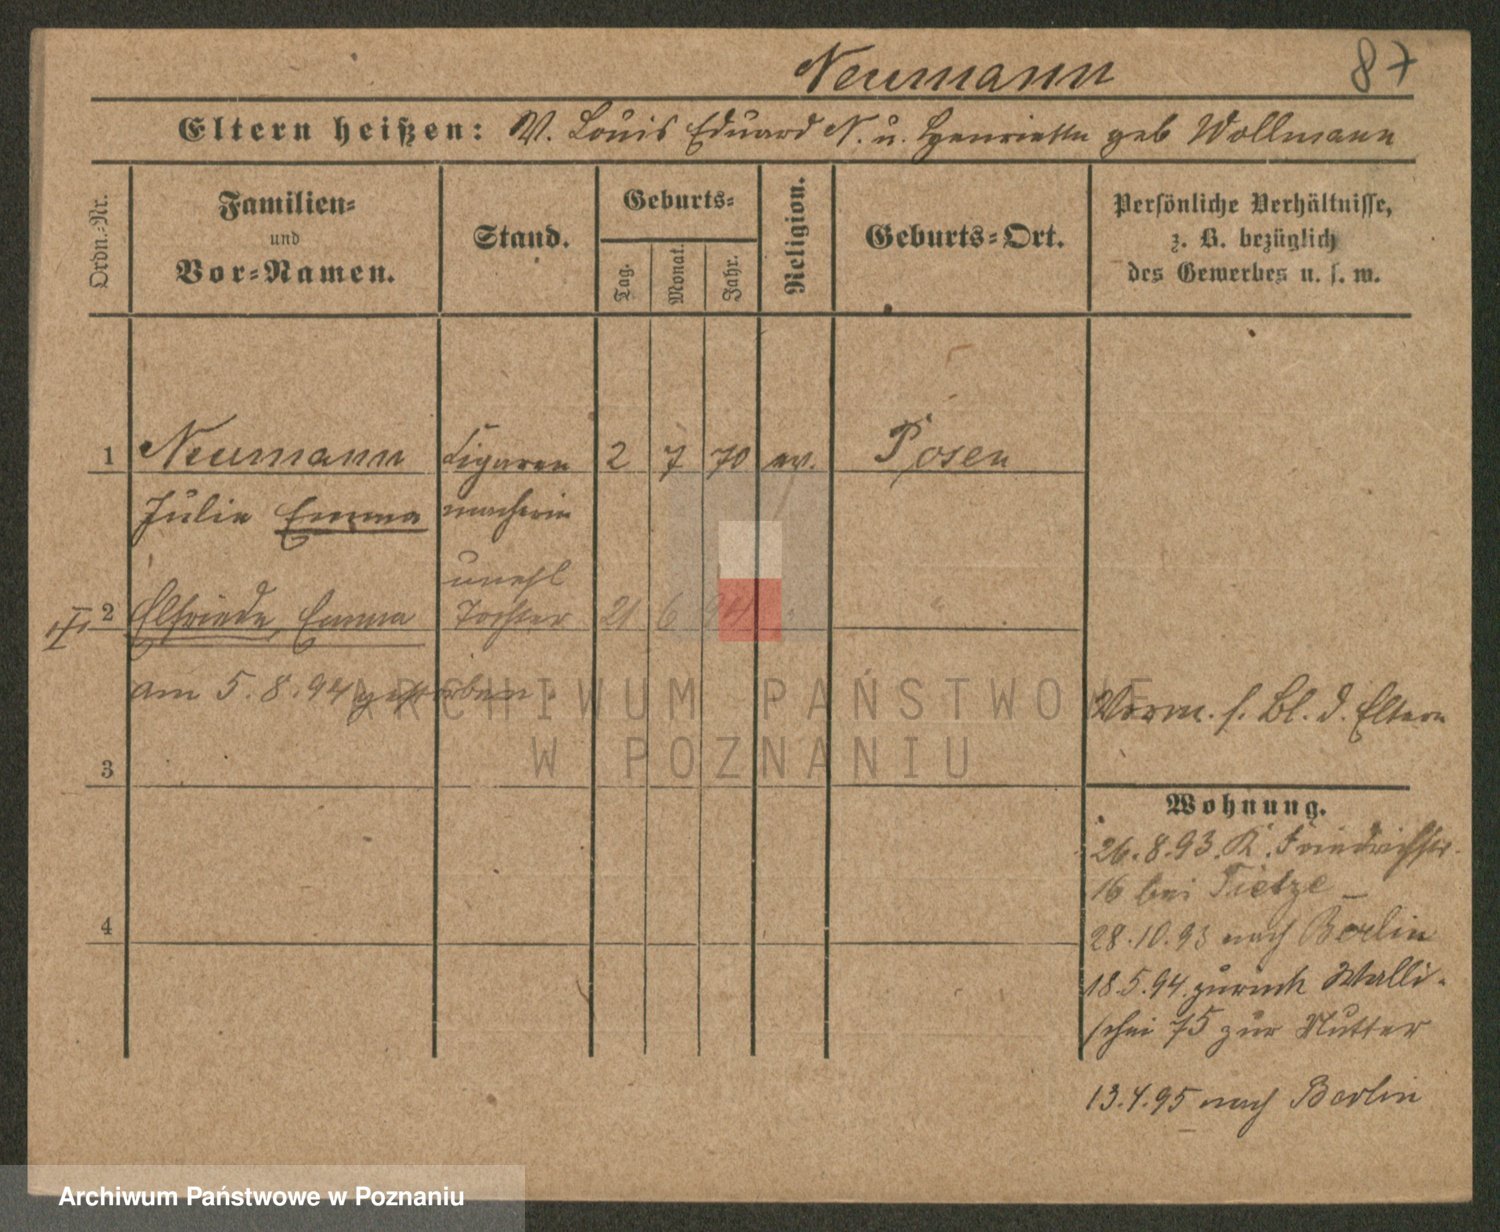 Neumann 87
Eltern heißen: V. Louis Eduard N. u. Henriette geb Wollmann
Ordn.-Nr.
Familien-
und
Vor-Namen.
Stand.
Geburts-
Tag.
Monat.
Jahr.
Religion.
Geburts-Ort.
Persönliche Verhältnisse,
z. B. bezüglich
des Gewerbes u. s. w.
1 Neumann Cigarren 2 7 70 ev. Posen
Julie Emma macherin
unehl
2 Elfriede, Emma Tochter 21 6 94 "
am 5.8.94 gestorben.
Vorm. s. Bl. d. Eltern
3
Wohnung.
26.8.93. K. Friedrichstr.
16 bei Tietze
4
28.10.93 nach Berlin
18.5.94 zurück Walli-
schei 75 zur Mutter
13.4.95 nach Berlin
ARCHIWUM PAŃSTWOWE
W POZNANIU
Archiwum Państwowe w Poznaniu